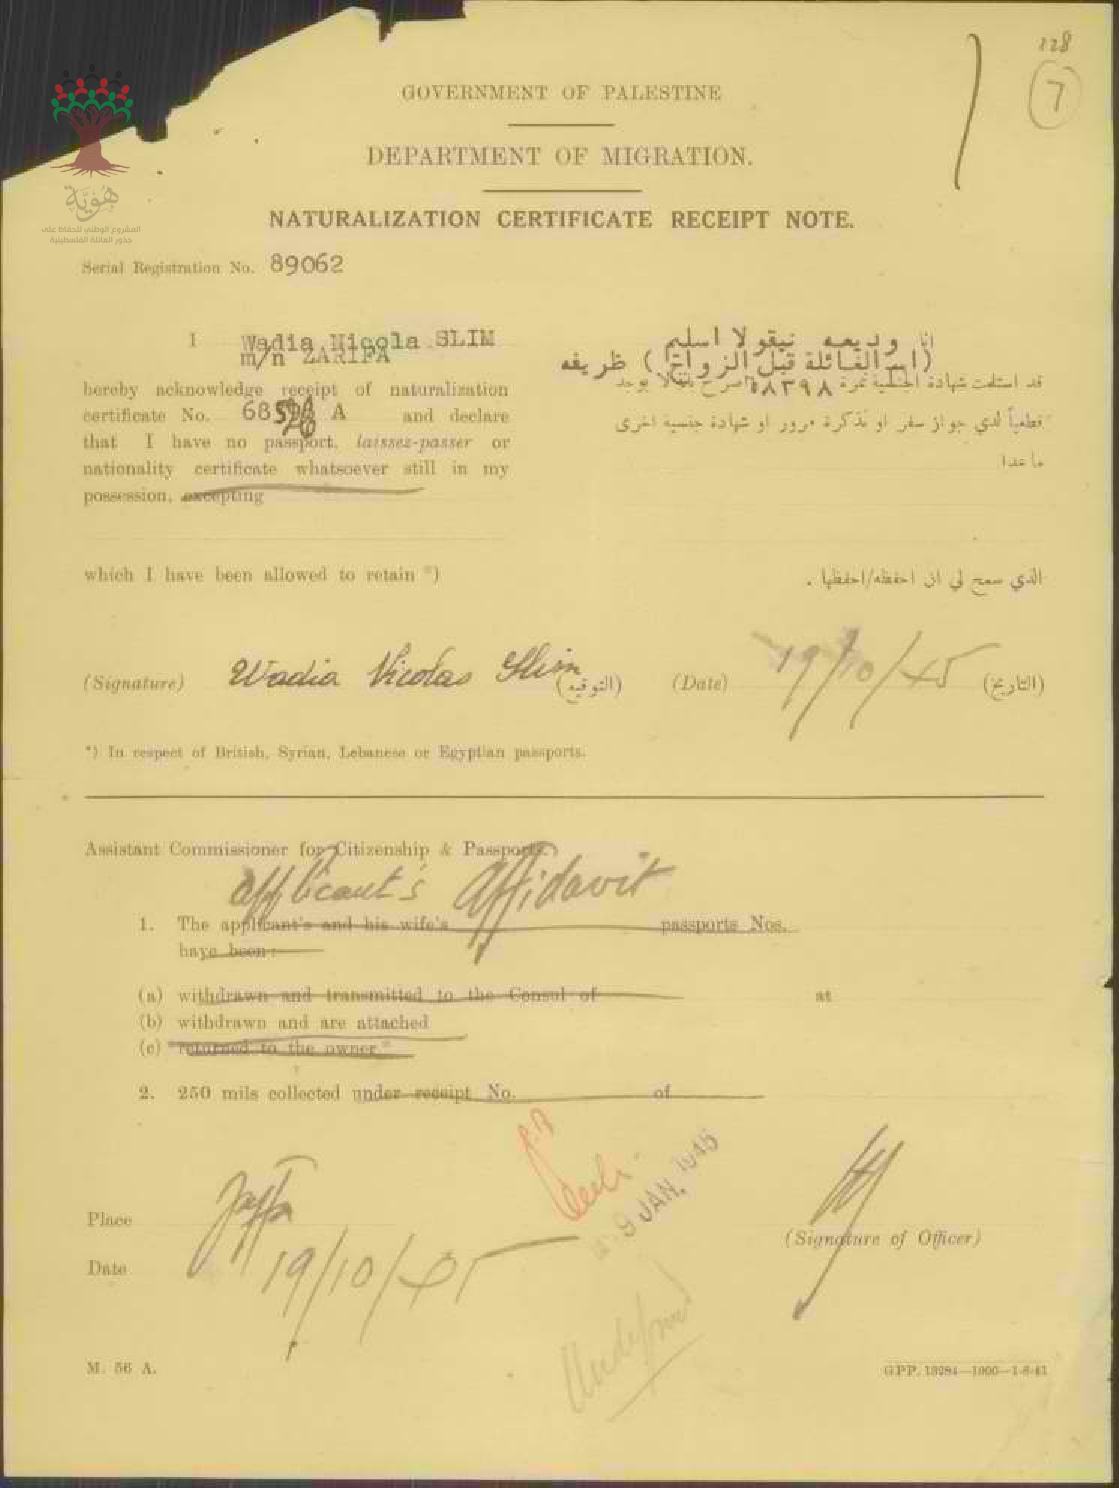 128
7
هوية
المشروع الوطني للحفاظ على
جذور العائلة الفلسطينية
GOVERNMENT OF PALESTINE
DEPARTMENT OF MIGRATION.
NATURALIZATION CERTIFICATE RECEIPT NOTE.
Serial Registration No. 89062
I Wadia Nicola SLIM
m/n ZARIFA
hereby acknowledge receipt of naturalization
certificate No. 68 A and declare
that I have no passport, laissez-passer or
nationality certificate whatsoever still in my
possession, excepting
which I have been allowed to retain *)
انا وديعه نيقولا اسليم
(اسم العائلة قبل الزواج) ظريفه
قد استلمت شهادة الجنسية نمرة ٥٨٣٩٨ اصرح بانه لا يوجد
قطعياً لدي جواز سفر او تذكرة مرور او شهادة جنسية اخرى
ما عدا
الذي سمح لي ان احفظه/احفظها .
(Signature) Wadia Nicolas Slim (التوقيع) (Date) 19/10/45 (التاريخ)
*) In respect of British, Syrian, Lebanese or Egyptian passports.
Assistant Commissioner for Citizenship & Passports.
Applicant's Affidavit
1. The applicant's and his wife's passports Nos.
have been:
(a) withdrawn and transmitted to the Consul of at
(b) withdrawn and are attached
(c) returned to the owner*
2. 250 mils collected under receipt No. of
9 JAN. 1946
Place Jaffa
(Signature of Officer)
Date 19/10/45
M. 56 A.
GPP. 13284—1000—1-8-41